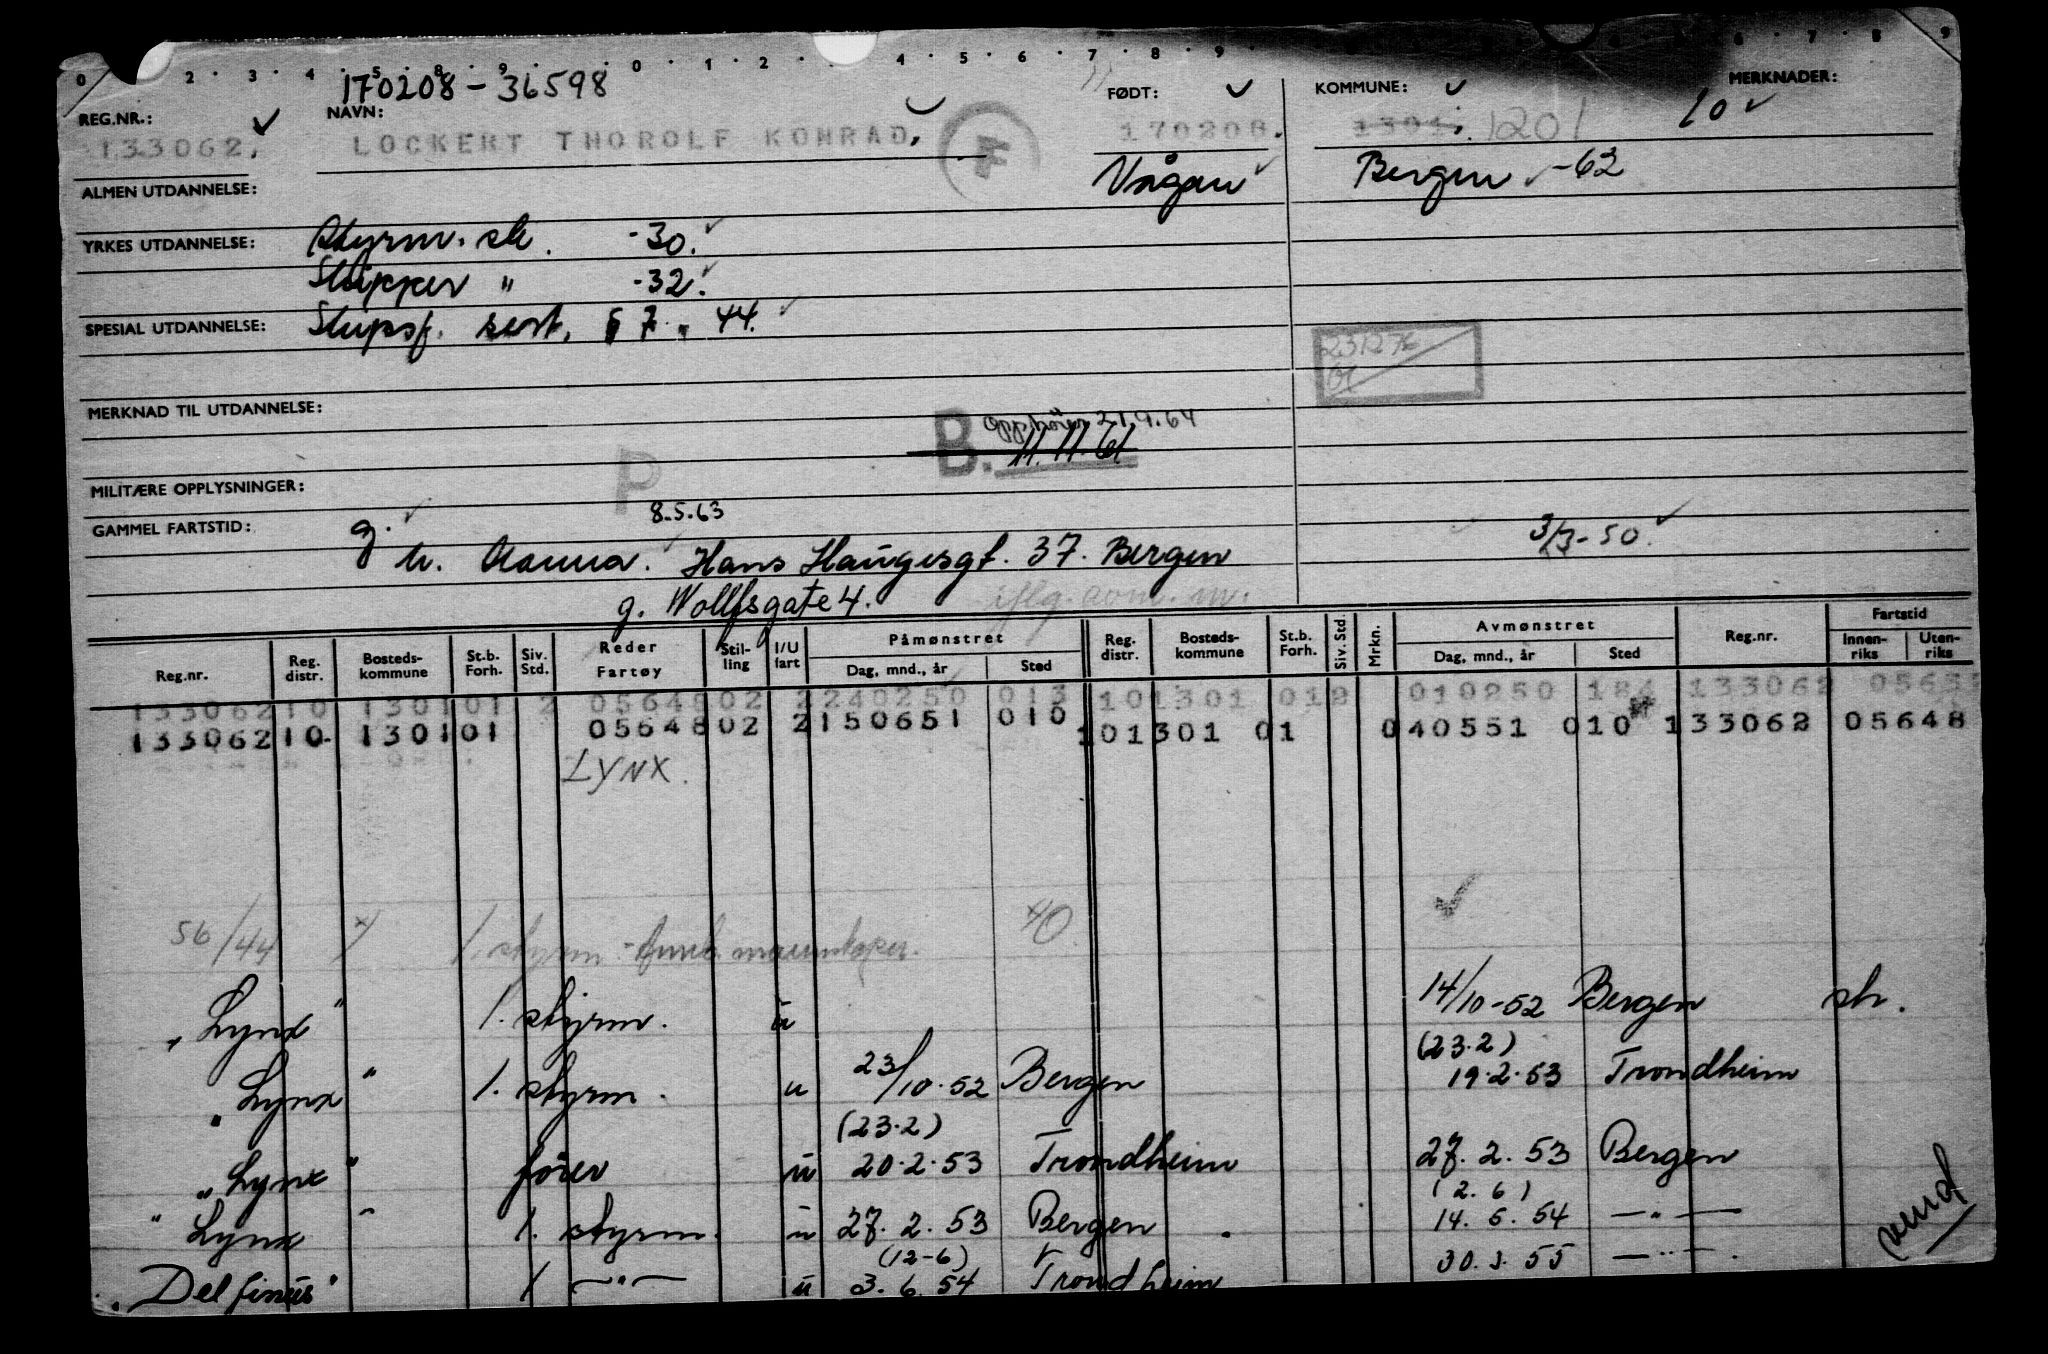 0 2 · 3 · 4 · 5 8 9 · · 0 · 1 · 2 · · 4 · 5 · 6 · 7 · 8 · 9 6 · 7 · 8 · 9
170208 - 36598
REG.NR.: NAVN: FØDT: KOMMUNE: MERKNADER:
133062. LOCKERT THOROLF KONRAD. 170208. 1301. 1201 10
Vågan Bergen -62
ALMEN UTDANNELSE:
YRKES UTDANNELSE: Styrm. sk. -30.
Skipper " -32.
SPESIAL UTDANNELSE: Skipsf. sert. 57. 44.
231276
01
MERKNAD TIL UTDANNELSE:
Opphører 21.9.64
B. 11.11.61
P
MILITÆRE OPPLYSNINGER:
8.5.63
GAMMEL FARTSTID: g. 3/3-50.
h. Aanna. Hans Haugesgt. 37. Bergen
g. Wollfsgate 4.
Reg.nr. Reg. distr. Bosteds-kommune St.b. Forh. Siv. Std. Reder Fartøy Stil-ling I/U fart Påmønstret Dag, mnd., år Sted Reg. distr. Bosteds-kommune St.b. Forh. Siv. Std. Mrkn. Avmønstret Dag, mnd., år Sted Reg.nr. Fartstid Innen-riks Uten-riks
133062 10 1301 01 2 05648 02 2 240250 013 10 1301 01 010250 133062
133062 10. 1301 01 05648 02 2 150651 010 10 1301 01 040551 010 133062 05648
LYNX.
56/44 1. styrm. 40
"Lynx" 1. styrm. u 14/10-52 Bergen
(23.2)
"Lynx" 1. styrm. u 23/10.52 Bergen 19.2.53 Trondheim
(23.2)
"Lynx" fører u 20.2.53 Trondheim 27.2.53 Bergen
(2.6)
"Lynx" 1. styrm. u 27.2.53 Bergen 14.5.54 — " —
(12-6)
"Delfinus" 1 — " — u 3.6.54 Trondheim 30.3.55 — " — .
vend